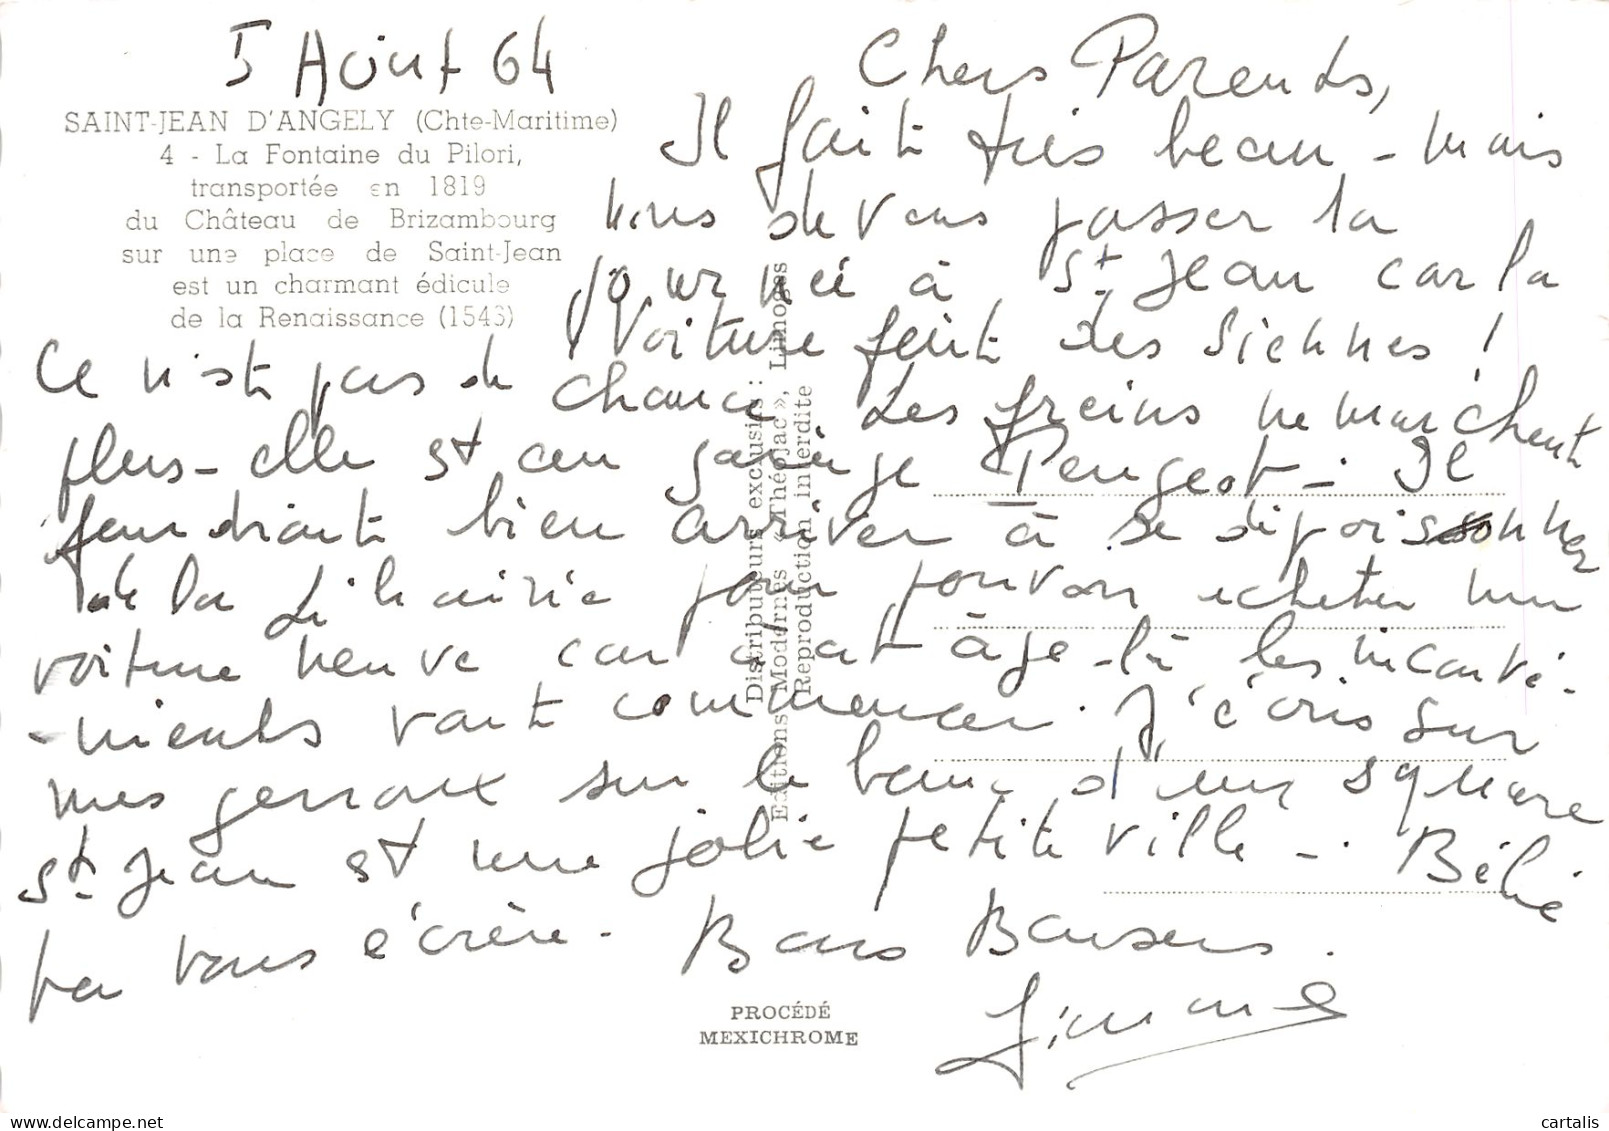 5 Août 64
SAINT-JEAN D'ANGELY (Chte-Maritime)
4 - La Fontaine du Pilori,
transportée en 1819
du Château de Brizambourg
sur une place de Saint-Jean
est un charmant édicule
de la Renaissance (1543)
Chers Parents,
Il fait très beau - mais
nous devons passer la
journée à St Jean car la
Voiture fait des siennes !
Ce n'est pas de chance Les freins ne marchent
plus - elle est au garage Peugeot - Il
faudrait bien arriver à se
de la pour pouvoir acheter une
voiture neuve car à cet âge-là les inconvé-
-nients vont commencer. J'écris sur
mes genoux sur le banc d'un square
St Jean est une jolie petite ville - . Bébé
va vous écrire. Bons Baisers.
PROCÉDÉ
MEXICHROME
Distributeurs exclusifs :
Editions Modernes « Théojac », Limoges
Reproduction interdite
cartalis
delcampe.net